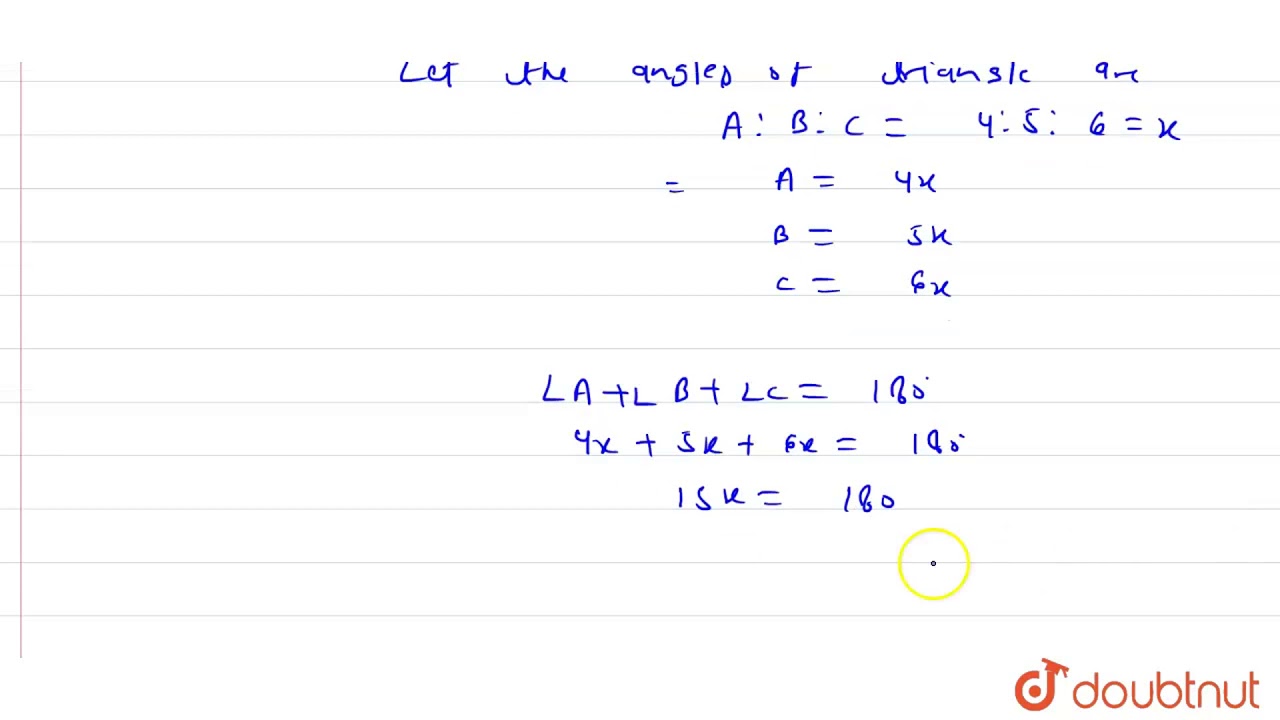 Let the angles of triangle are
A : B : C = 4 : 5 : 6 = x
= A = 4x
B = 5x
C = 6x
∠A + ∠B + ∠C = 180°
4x + 5x + 6x = 180°
15x = 180
doubtnut